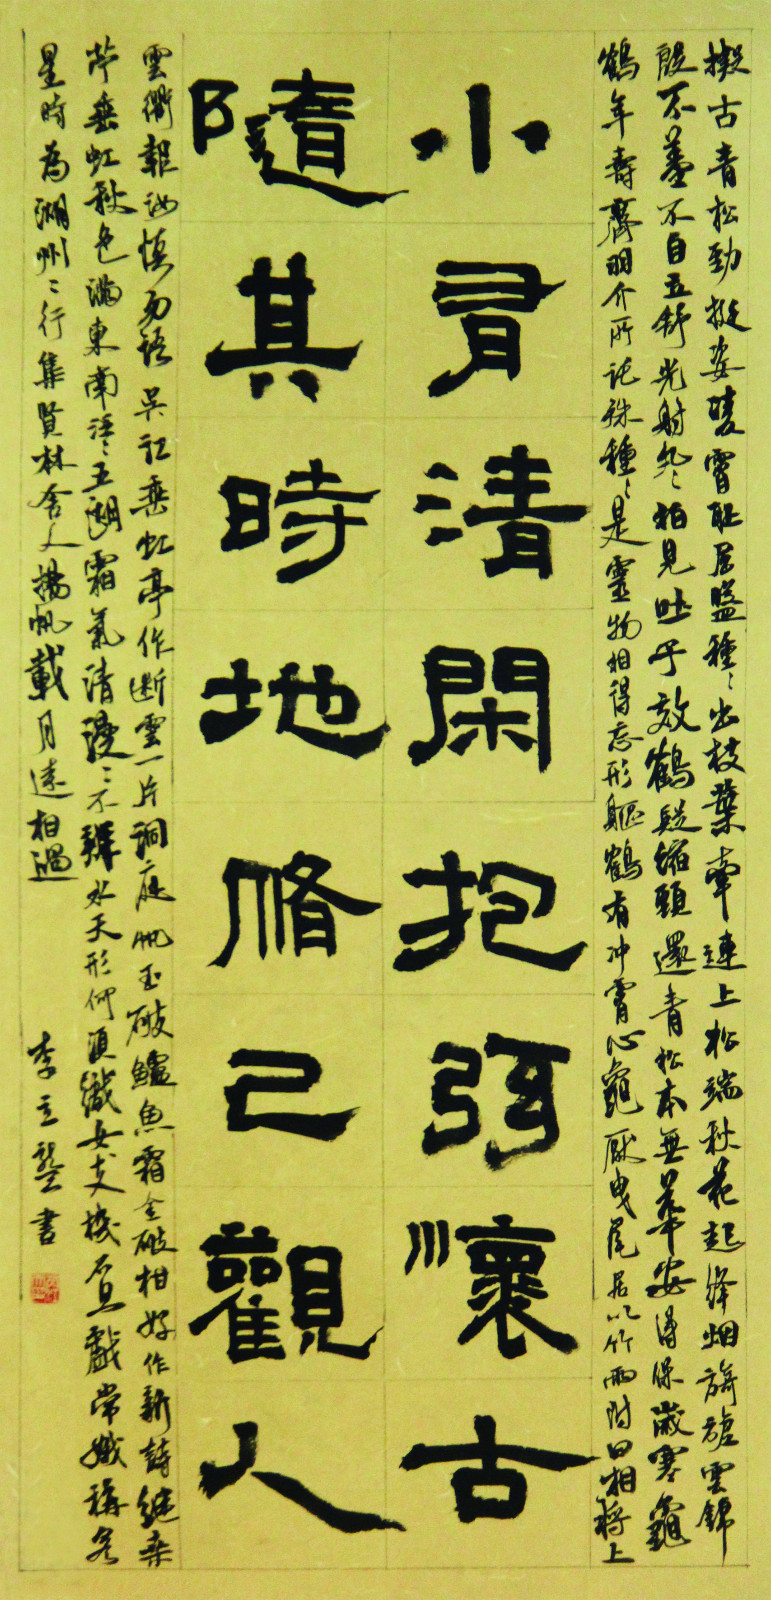 擬古青松勁挺姿凌霄恥屈盤種〻出枝葉牽連上松端秋花起絳烟旖旎雲錦
殷不羞不自立舒光射丸〻柏見吐子效鶴疑縮頸還青松本無華安得保歲寒龜
鶴年壽齊羽介所託殊種〻是靈物相得忘形軀鶴有沖霄心龜厭曳尾居以竹兩附口相將上
小有清閑抱弦懷古
隨其時地脩己觀人
雲衢報汝慎勿語吳江垂虹亭作斷雲一片洞庭帆玉破鱸魚霜金破柑好作新詩繼桑
苧垂虹秋色滿東南泛〻五湖霜氣清漫〻不辨水天形何須織女支機石且戲常娥稱客
星時為湖州之行集賢林舍人揚帆載月遠相過
李立書